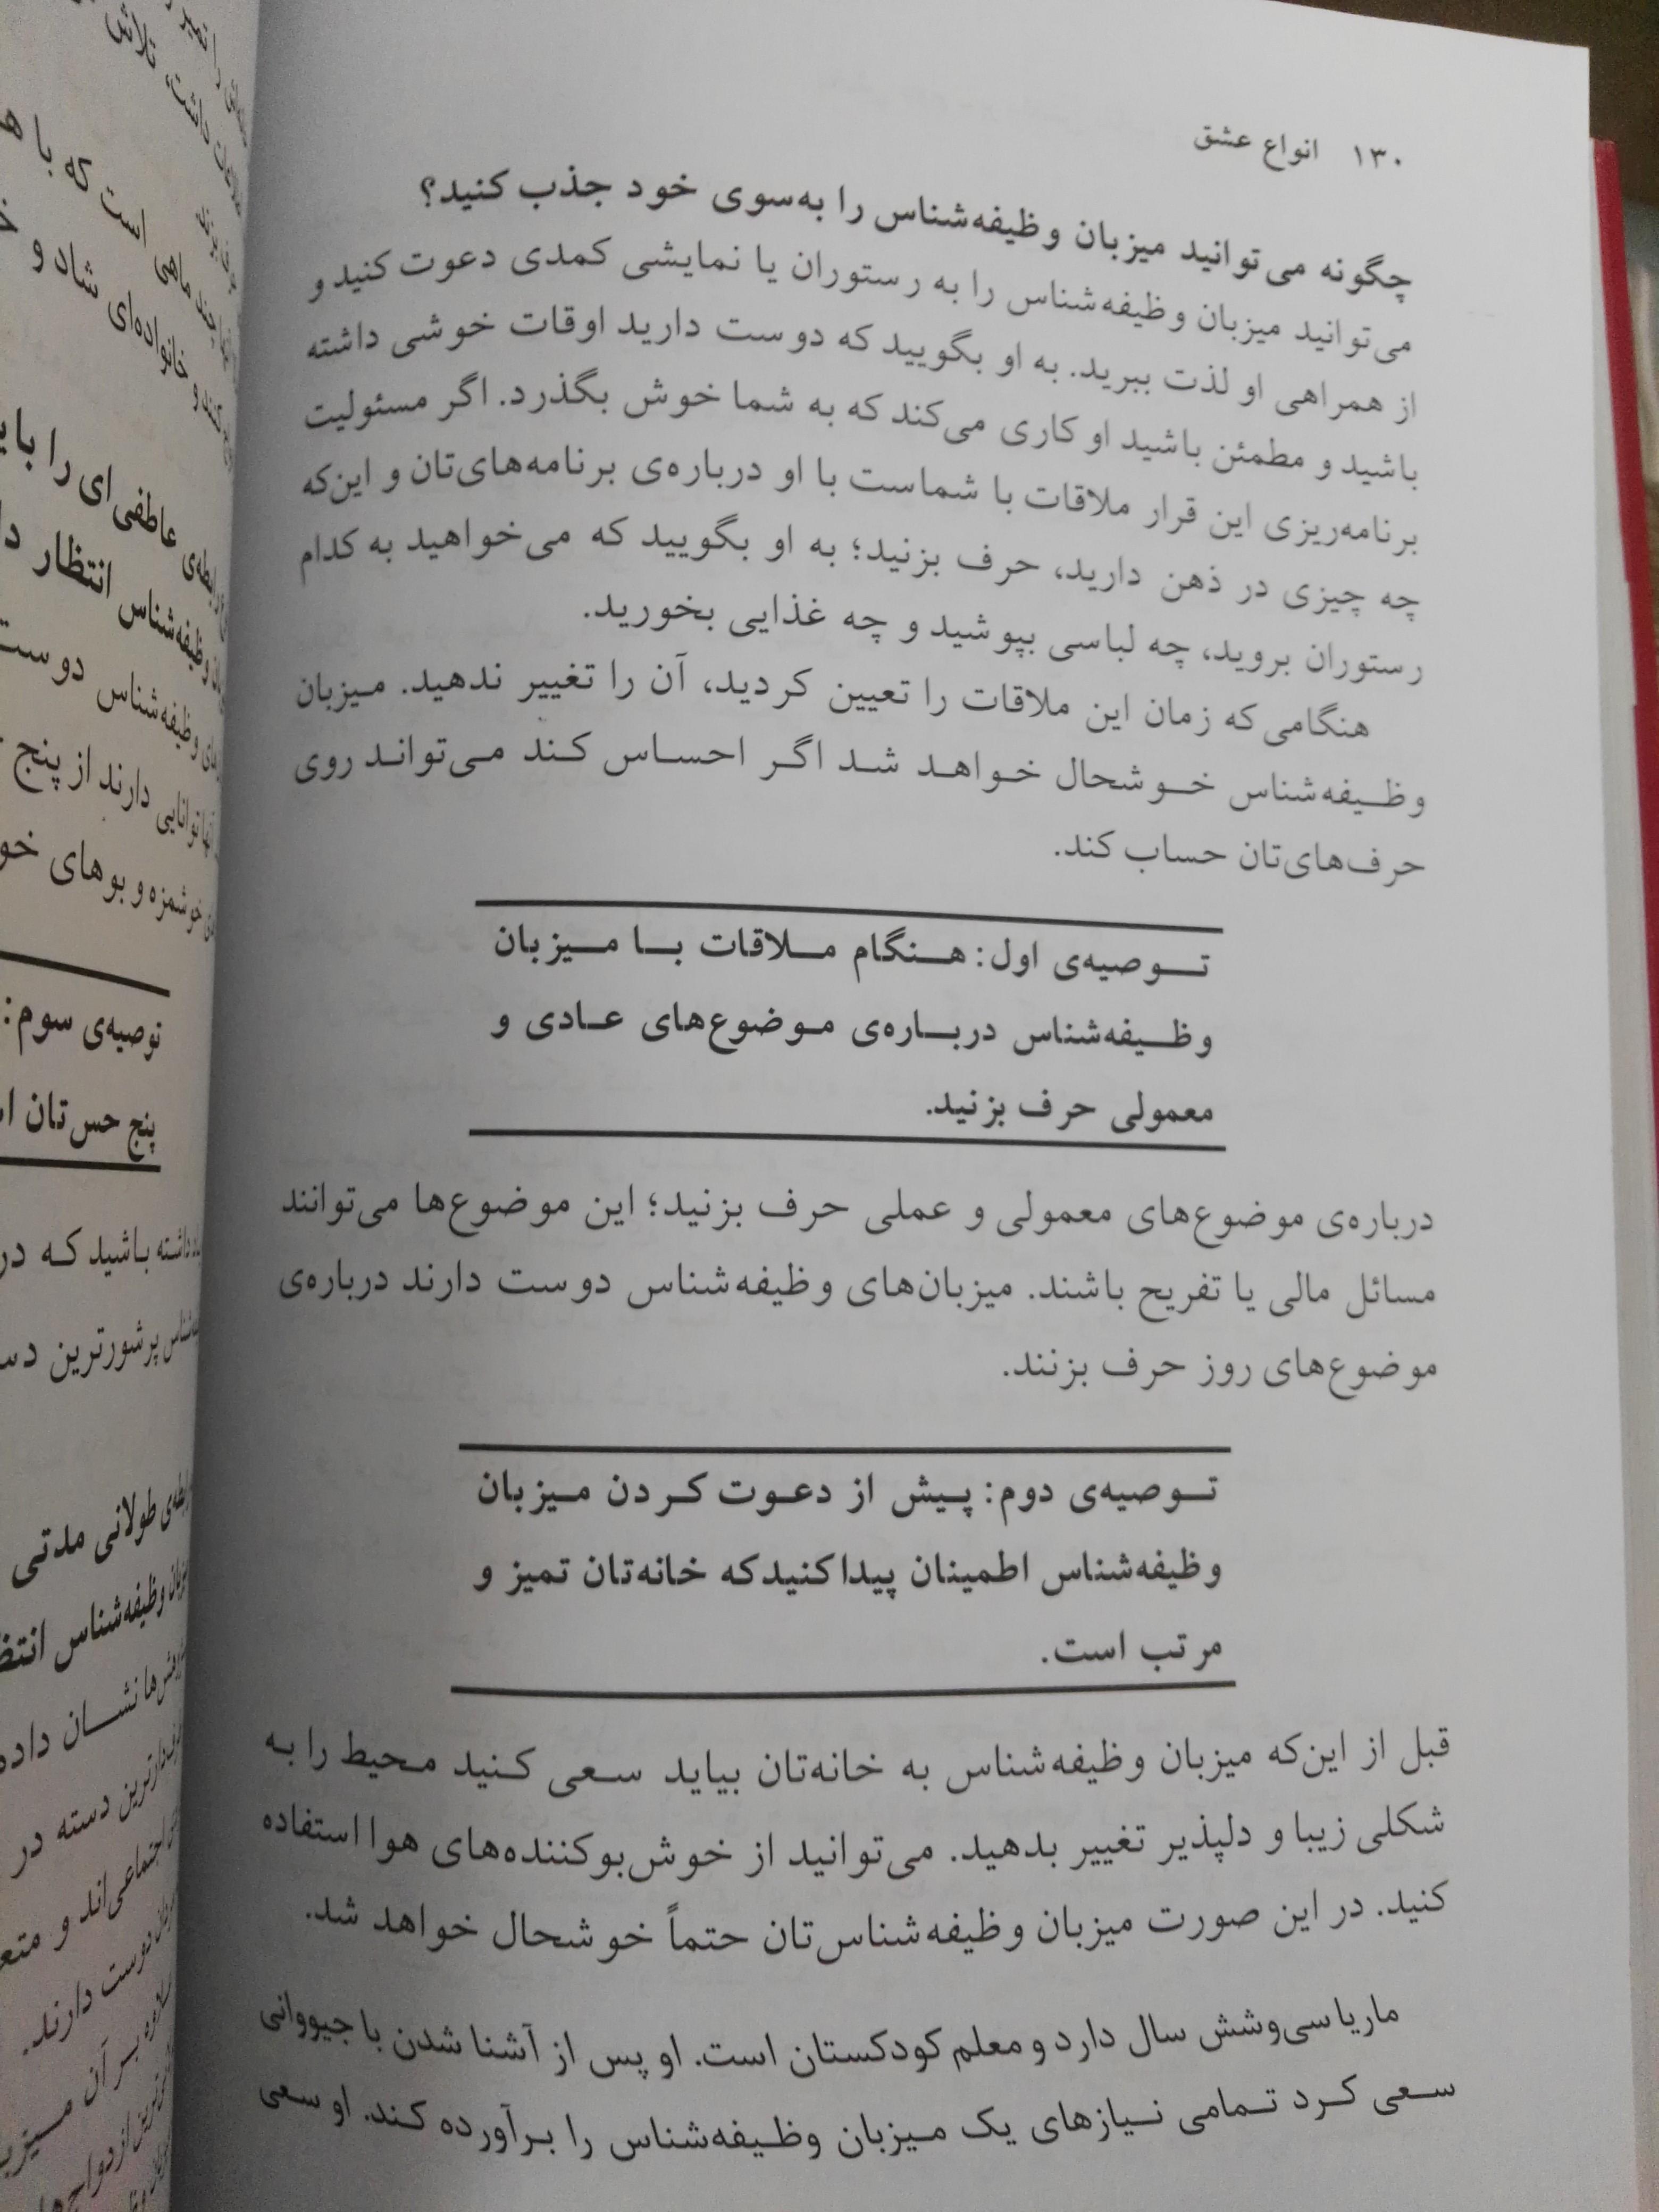 ۱۳۰ انواع عشق
چگونه می‌توانید میزبان وظیفه‌شناس را به‌سوی خود جذب کنید؟
می‌توانید میزبان وظیفه‌شناس را به رستوران یا نمایشی کمدی دعوت کنید و
از همراهی او لذت ببرید. به او بگویید که دوست دارید اوقات خوشی داشته
باشید و مطمئن باشید او کاری می‌کند که به شما خوش بگذرد. اگر مسئولیت
برنامه‌ریزی این قرار ملاقات با شماست با او درباره‌ی برنامه‌های‌تان و این‌که
چه چیزی در ذهن دارید، حرف بزنید؛ به او بگویید که می‌خواهید به کدام
رستوران بروید، چه لباسی بپوشید و چه غذایی بخورید.
هنگامی‌که زمان این ملاقات را تعیین کردید، آن را تغییر ندهید. میزبان
وظیفه‌شناس خوشحال خواهد شد اگر احساس کند می‌تواند روی
حرف‌های‌تان حساب کند.
توصیه‌ی اول: هنگام ملاقات با میزبان
وظیفه‌شناس درباره‌ی موضوع‌های عادی و
معمولی حرف بزنید.
درباره‌ی موضوع‌های معمولی و عملی حرف بزنید؛ این موضوع‌ها می‌توانند
مسائل مالی یا تفریح باشند. میزبان‌های وظیفه‌شناس دوست دارند درباره‌ی
موضوع‌های روز حرف بزنند.
توصیه‌ی دوم: پیش از دعوت کردن میزبان
وظیفه‌شناس اطمینان پیدا کنید که خانه‌تان تمیز و
مرتب است.
قبل از این‌که میزبان وظیفه‌شناس به خانه‌تان بیاید سعی کنید محیط را به
شکلی زیبا و دلپذیر تغییر بدهید. می‌توانید از خوش‌بوکننده‌های هوا استفاده
کنید. در این صورت میزبان وظیفه‌شناس‌تان حتماً خوشحال خواهد شد.
ماریا سی‌وشش سال دارد و معلم کودکستان است. او پس از آشنا شدن با جیووانی
سعی کرد تمامی نیازهای یک میزبان وظیفه‌شناس را برآورده کند. او سعی
تلاش
است که با
خانواده‌ای شاد و
عاطفی‌ای را
وظیفه‌شناس انتظار
وظیفه‌شناس دوست
توانایی دارند از پنج
خوشمزه و بوهای
توصیه‌ی سوم:
پنج حس‌تان
داشته باشید که در
پرشورترین
طولانی مدتی
وظیفه‌شناس
نشان داده
دسته در
اجتماعی‌اند و
دوست دارند.
بر آن